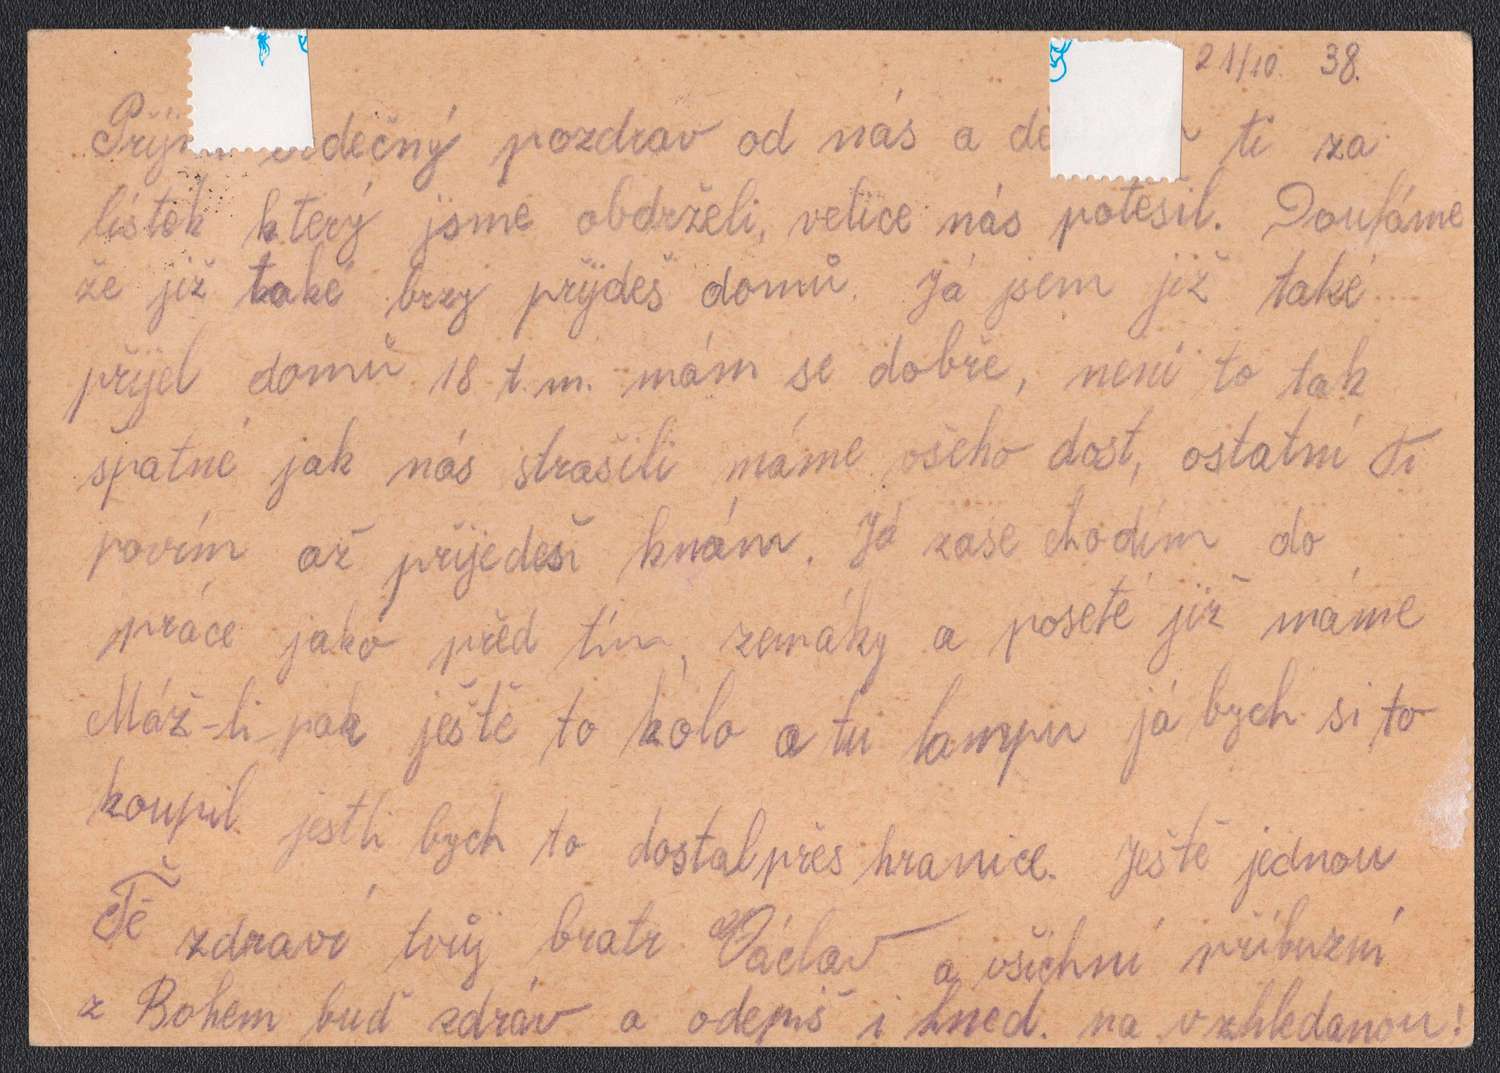 21/10. 38.
Přijm dečný pozdrav od nás a dě ti za
lístek který jsme obdrželi, velice nás potěšil. Doufáme
že již také brzy přijdeš domů. Já jsem již také
přijel domů 18 t.m. mám se dobře, není to tak
špatné jak nás strašili máme všeho dost, ostatní Ti
povím až přijedeš knám. Já zase chodím do
práce jako před tím, zemáky a poseté již máme
Máž-li pak ještě to kolo a tu lampu já bych si to
koupil jestli bych to dostal přes hranice. Ještě jednou
Tě zdraví tvůj bratr Václav a všichni příbuzní
z Bohem buď zdráv a odepiš i hned. na vzhledanou!